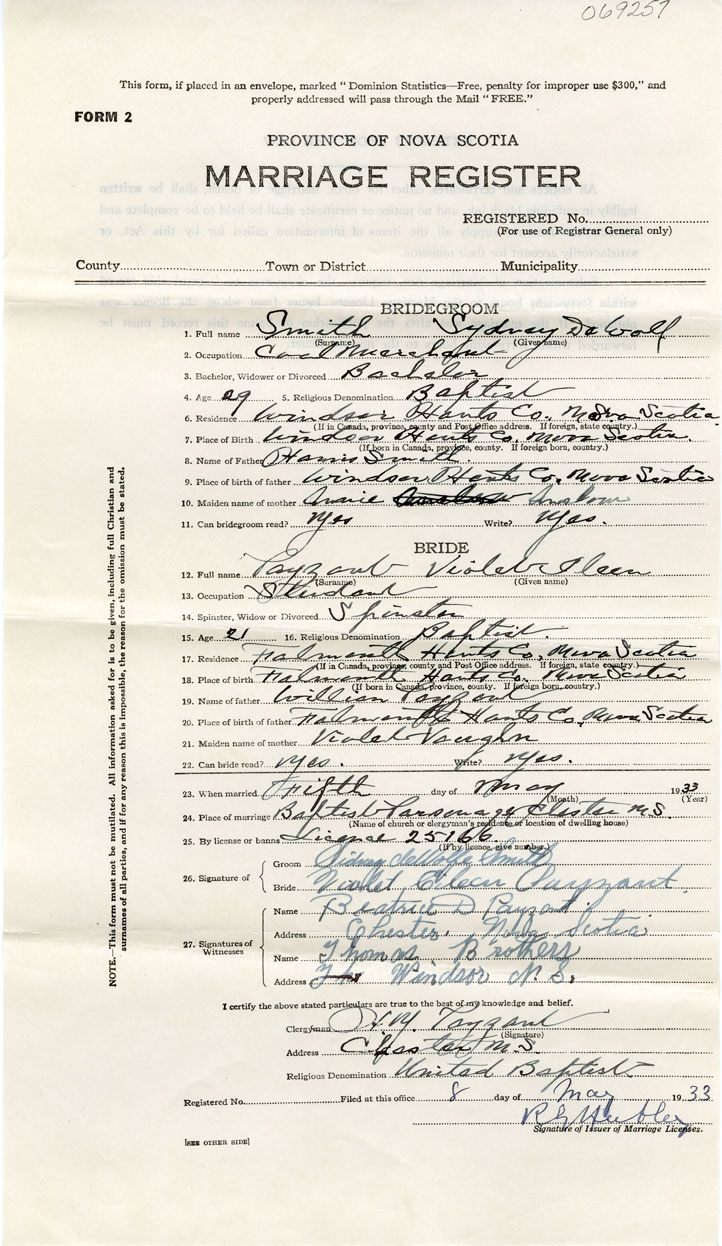 069257
This form, if placed in an envelope, marked "Dominion Statistics—Free, penalty for improper use $300," and
properly addressed will pass through the Mail "FREE."
FORM 2
PROVINCE OF NOVA SCOTIA
MARRIAGE REGISTER
REGISTERED No.
(For use of Registrar General only)
County Town or District Municipality
BRIDEGROOM
1. Full name Smith Sydney DeWolf
(Surname) (Given name)
2. Occupation Coal Merchant
3. Bachelor, Widower or Divorced Bachelor
4. Age 29 5. Religious Denomination Baptist
6. Residence Windsor Hants Co. Nova Scotia
(If in Canada, province, county and Post Office address. If foreign, state country.)
7. Place of Birth Windsor Hants Co. Nova Scotia.
(If born in Canada, province, county. If foreign born, country.)
8. Name of Father Harris Smith
9. Place of birth of father Windsor Hants Co. Nova Scotia
10. Maiden name of mother Annie
11. Can bridegroom read? Yes Write? Yes.
BRIDE
12. Full name Payzant Violet Ileen
(Surname) (Given name)
13. Occupation Student
14. Spinster, Widow or Divorced Spinster
15. Age 21 16. Religious Denomination Baptist.
17. Residence Falmouth Hants Co. Nova Scotia
(If in Canada, province, county and Post Office address. If foreign, state country.)
18. Place of birth Falmouth Hants Co. Nova Scotia
(If born in Canada, province, county. If foreign born, country.)
19. Name of father William Payzant
20. Place of birth of father Falmouth Hants Co. Nova Scotia
21. Maiden name of mother Violet Vaughn
22. Can bride read? Yes. Write? Yes.
23. When married Fifth day of May 1933
(Month) (Year)
24. Place of marriage Baptist Parsonage Chester N.S.
(Name of church or clergyman's residence or location of dwelling house)
25. By license or banns License 25166
(If by licence, give number)
26. Signature of
Groom Sidney deWolfe Smith
Bride Violet Eileen Payzant
27. Signatures of Witnesses
Name Beatrice D Payzant
Address Chester. Nova Scotia
Name Thomas Brothers
Address Windsor N.S.
I certify the above stated particulars are true to the best of my knowledge and belief.
Clergyman Payzant
(Signature)
Address Chester N.S.
Religious Denomination United Baptist
Registered No. Filed at this office 8 day of May 1933
Signature of Issuer of Marriage Licenses.
[SEE OTHER SIDE]
NOTE.—This form must not be mutilated. All information asked for is to be given, including full Christian and
surnames of all parties, and if for any reason this is impossible, the reason for the omission must be stated.